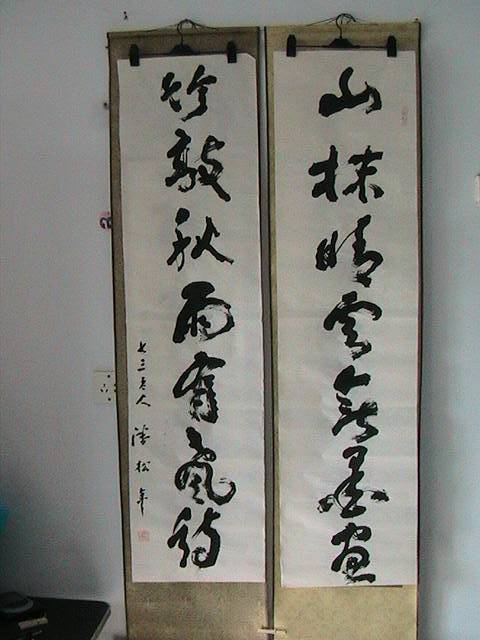 山抹晴云無墨畫
竹敲秋雨有聲詩
七三老人 潘松年